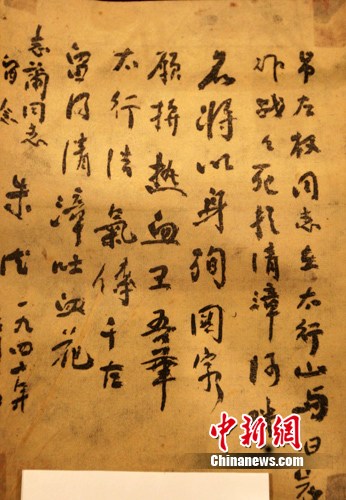 吊左权同志在太行山与日寇
作战々死於清漳河畔
名將以身殉國家
願拚熱血卫吾華
太行浩氣傳千古
留得清漳吐血花
志蘭同志
留念 朱德 一九四 年
中新网
Chinanews.com